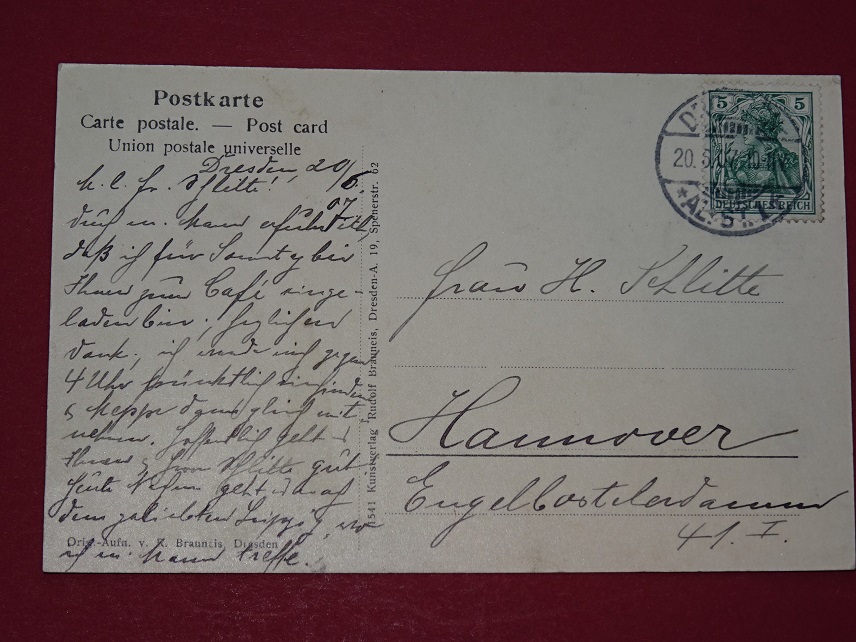 Postkarte
Carte postale. — Post card
Union postale universelle
Dresden, 20/6. 07.
M. l. Fr. Schlitte!
durch m. Mann erfuhr
daß ich für Sonntag bei
Ihnen zum Café einge-
laden bin, herzlichen
Dank, ich werde mich gegen
4 Uhr pünktlich einfinden
dann gleich mit
nehmen. Hoffentlich geht es
Ihnen Schlitte gut
Heute geht es auf
dem geliebten Leipzig, wo
ich m. Mann treffe.
Orig.-Aufn. v. R. Brauneis, Dresden
1541 Kunstverlag Rudolf Brauneis, Dresden-A. 19, Spenerstr. 62
5 5
DEUTSCHES REICH
20. 6. 07. 10-11V.
* ALTST. 1
Frau H. Schlitte
Hannover
Engelbostelerdamm
41. I.